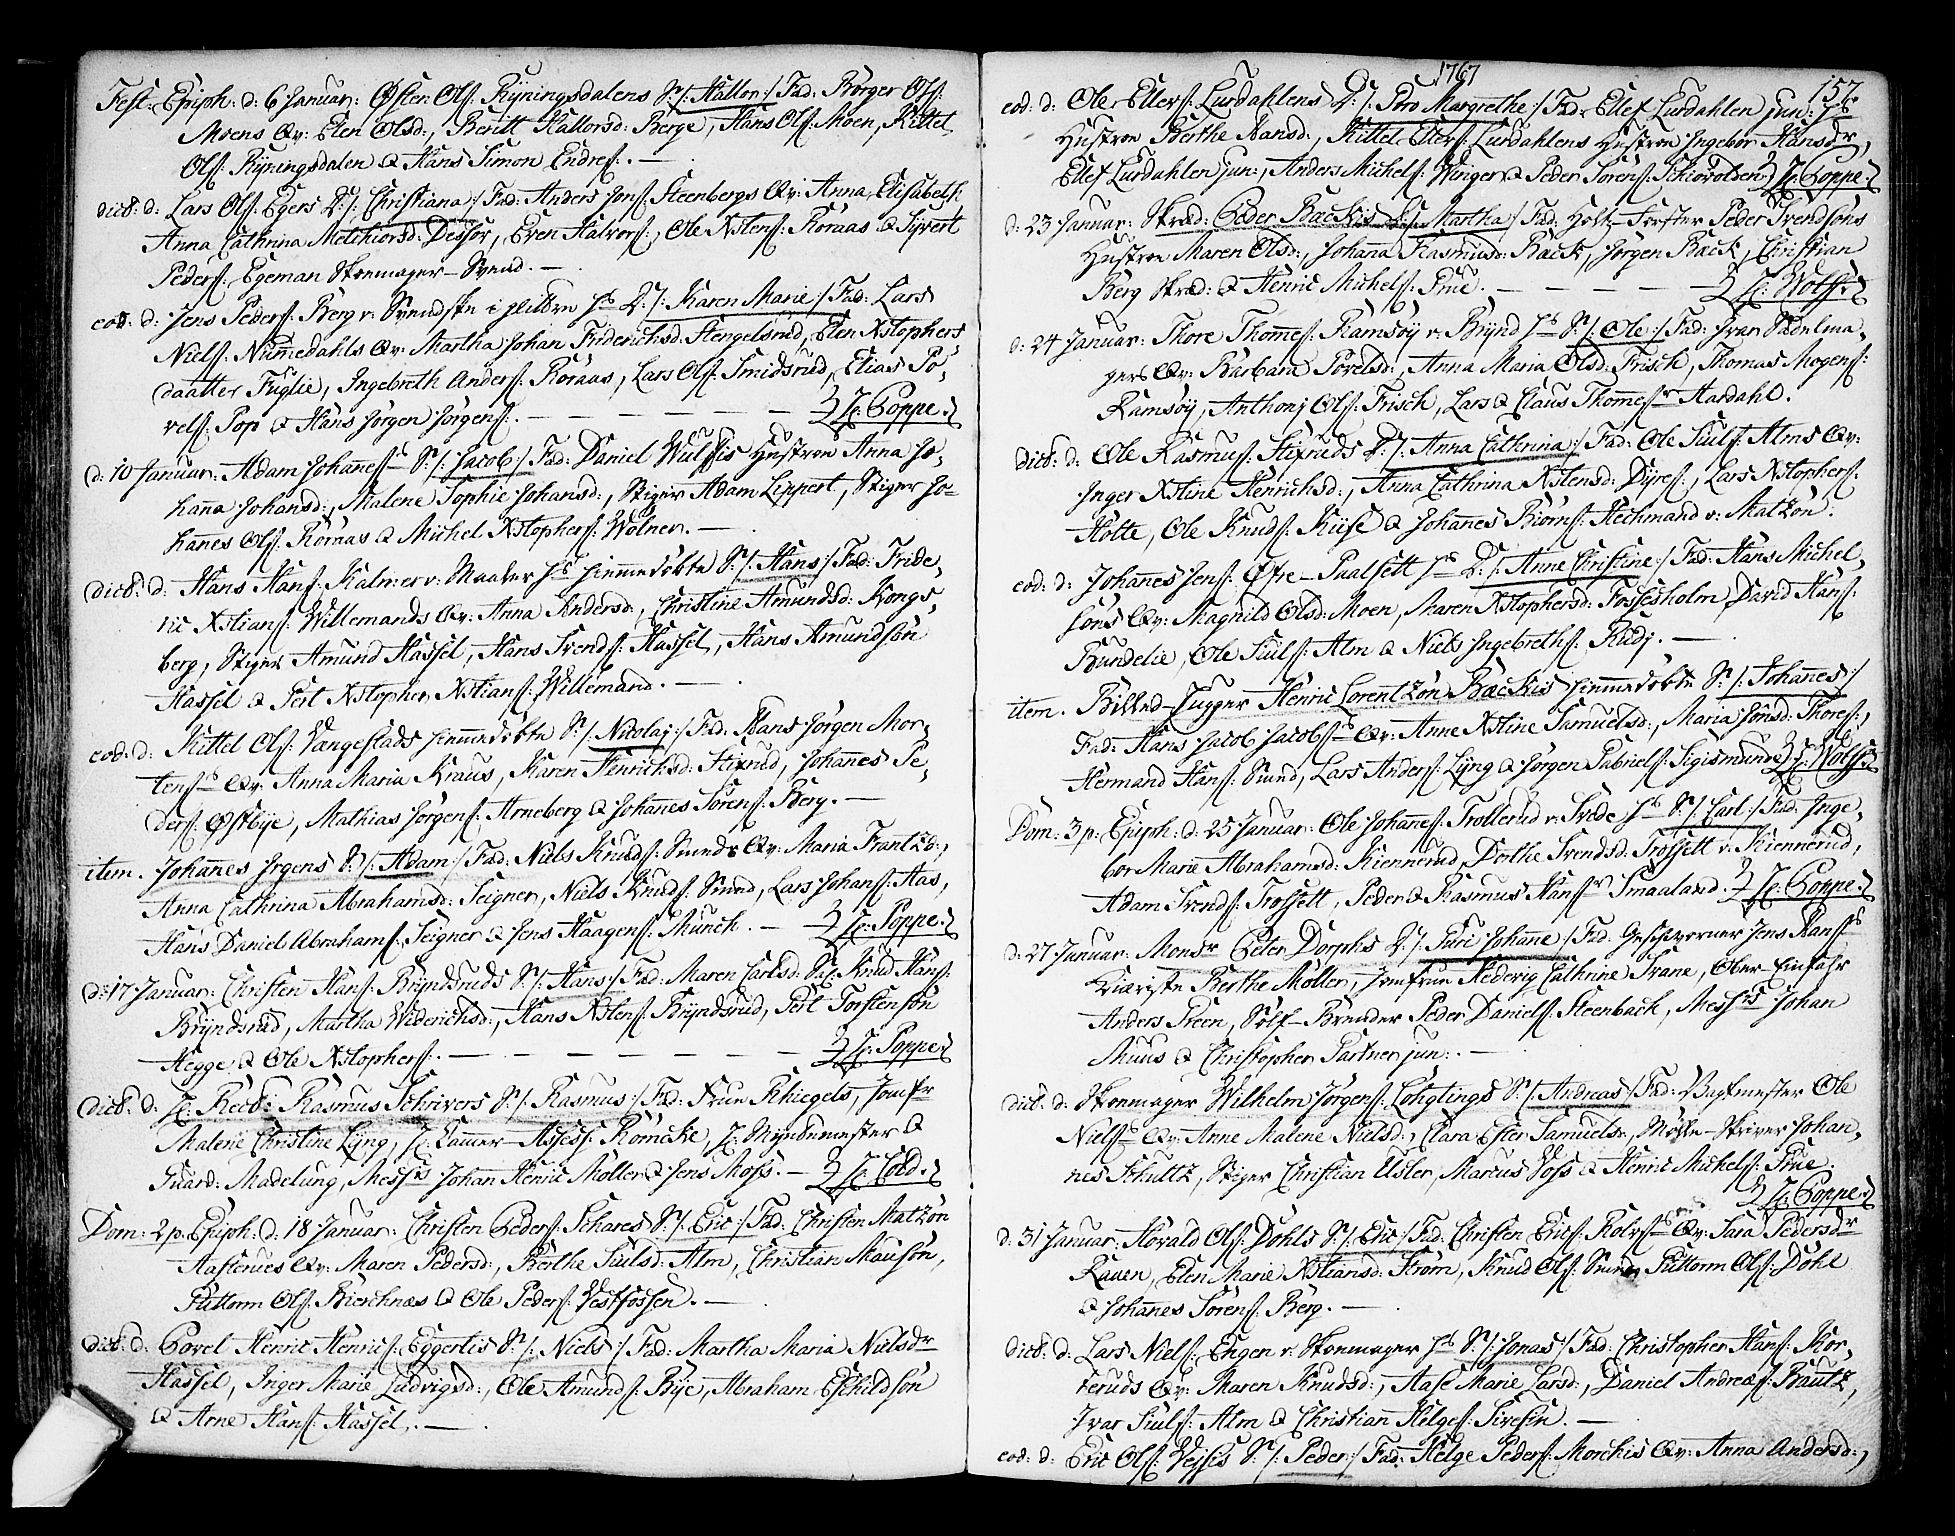 Fest: Epiph: d: 6 Januar: Østen Ols: Ryningsdalens S: /: Hallor :/ Fad: Børger Ols:
Moens Qv: Elen Olsd:, Beritt Hallorsd: Berge, Hans Ols: Moen, Kittel
Ols: Ryningsdalen & Hans Simon Endres: . —
dict: d: Lars Ols: Egers D: /: Christiana :/ Fad: Anders Jons: Steenbergs Qv: Anna Elisabeth
Anna Cathrina Melchiorsd: Dessor, Even Halvors:, Ole Nstens: Roraas & Syvert
Peders: Egeman Skoemager-Svend. —
eod: d: Jens Peders: Berg v: Svendste i Hitten hs D: /: Karen Marie :/ Fad: Lars
Niels: Nummedahls Qv: Martha Johan Friderichsd: Stengelsrud, Elen Xstophers
daatter Fuglie, Ingebreth Anders: Roraas, Lars Ols: Smidsrud, Elias Po-
vels: Pop & Hans Jørgen Jørgens: . — — — — — H: Poppe.
d: 10 Januar: Adam Johannes: S: /: Jacob :/ Fad: Daniel Wulfis Hustroe Anna Jo-
hanna Johansd:, Malene Sophie Johansd:, Stiger Adam Lippert, Stiger Jo-
hannes Ols: Roraas & Michel Xstophers: Wolner. —
dict: d: Hans Hans: Kalmer v: Maaler hs hiemmedøbte S: /: Hans :/ Fad: Fride-
ric Xstians: Willemands Qv: Anna Andersd:, Christine Amundsd: Kongs-
berg, Stiger Amund Hassel, Hans Svends: Hassel, Hans Amundsøn
Hassel & Pert Xstopher Xstians: Willemand. —
eod: d: Kittel Ols: Vangestads hiemmedøbte S: /: Nicolaj :/ Fad: Hans Jørgen Mor-
tens: Qv: Anna Maria Kraus, Karen Henrichsd: Stixrud, Johannes Pe-
ders: Østbye, Mathias Jørgens: Arneberg & Johannes Sørens: Berg. —
item. Johannes Irgens S: /: Adam :/ Fad: Niels Knuds: Smeds Qv: Maria Frantzd:,
Anna Cathrina Abrahamsd: Seigner, Niels Knuds: Smed, Lars Johans: Aas,
Hans Daniel Abrahams: Seigner & Jens Haagens: Munch. — H: Poppe.
d: 17 Januar: Christen Hans: Bryndsruds S: /: Hans :/ Fad: Maren Carlsd: Knud Hans:
Bryndsrud, Martha Widerichsd:, Hans Xstens: Bryndsrud, Pert Torstensøn
Hegge & Ole Xstophers: . — — — — — — H: Poppe.
dict: d: H: Rasmus Schrivers S: /: Rasmus :/ Fad: Frue Rhiegels, Jomfr
Malene Christine Lyng, H: Cammer-Assess: Rømcke, H: Myntemester &
Guard: Madelung, Messrs Johan Henric Møller & Jens Moss. — H: Cold.
Dom: 2 p. Epiph: d: 18 Januar: Christen Peders: Schares S: /: Eric :/ Fad: Christen Matzøn
Aasterues Qv: Maren Pedersd:, Berthe Siulsd: Alm, Christian Mausøn,
Guttorm Ols: Bierchnæs & Ole Peders: Vestfossen. —
dict: d: Povel Henric Henrics: Eggertis S: /: Niels :/ Fad: Martha Maria Nielsdr
Hassel, Inger Marie Ludvigsd:, Ole Amunds: Bye, Abraham Eschildsøn
& Arne Hans: Hassel. —
1767
157
eod: d: Ole Ellefs: Lurdahlens D: /: Goro Margrethe :/ Fad: Ellef Lurdahlen jun: hs
Hustroe Berthe Hansd:, Kittel Ellefs: Lurdahlens Hustroe Ingebor Hansdr,
Ellef Lurdahlen jun:, Anders Michels: Winger & Peder Sørens: Schiovolden. H: Poppe.
d: 23 Januar: Skræd: Peder Backis D: /: Martha :/ Fad: Holt-Forster Peder Svendsøns
Hustroe Maren Olsd:, Johanna Rasmusd: Back, Jørgen Back, Christian
Berg Skræd: & Henric Michels: Prue. — — — — H: Wolf.
d: 24 Januar: Thore Thommes: Ramsøy v: Brynd hs S: /: Ole :/ Fad: Ivar Sadelma-
gers Qv: Barbara Povelsd:, Anna Maria Olsd: Frisch, Thomas Mogens:
Ramsøy, Anthonj Ols: Frisch, Lars & Claus Thommes: Aardahl.
dict: d: Ole Rasmus: Stixruds D: /: Anna Cathrina :/ Fad: Ole Siuls: Alms Qv:
Inger Xstine Henrichsd:, Anna Cathrina Xstensd: Dyres:, Lars Xstophers:
Holte, Ole Knuds: Kiise & Johannes Biørns: Hechmand v: Matzon.
eod: d: Johannes Jens: Øfre-Paalsett hs D: /: Anne Christine :/ Fad: Hans Michel-
søns Qv: Magnild Olsd: Moen, Maren Xstophersd: Fossesholm, David Hans:
Bundelie, Ole Siuls: Alm & Niels Ingebreths: Rudj. —
item. Billed-Hugger Henric Lorentzøn Backis hiemmedøbte S: /: Johannes :/
Fad: Hans Jacob Jacobs: Qv: Anne Xstine Samuelsd:, Maria Jonsd: Thores:,
Hermand Hans: Smed, Lars Anders: Lyng & Jørgen Gabriels: Sigismund. H: Wolf.
Dom: 3 p: Epiph: d: 25 Januar: Ole Johannes: Trollerud v: Svede hs S: /: Carl :/ Fad: Inge-
bor Marie Abrahamsd: Kiennerud, Dorthe Svendsd: Trossett v: Kiennerud,
Adam Svends: Trossett, Peder & Rasmus Hans: Smaaland. H: Poppe.
d: 27 Januar: Monsr Peter Dorphs D: /: Guri Johanne :/ Fad: Geschworner Jens Hans:
Kiæriste Berthe Møller, Jomfrue Hedevig Cathrine Srane, Ober-Einfahr
Anders Green, Sølf-Brender Peder Daniels: Steenback, Messrs Johan
Muus & Christopher Partner jun: . —
dict: d: Skoemager Wilhelm Jørgens: Løhgtings S: /: Andreas :/ Fad: Bygmester Ole
Niels: Qv: Anne Malene Nielsd:, Clara Ester Samuelsd:, Mølle-Skriver Johan-
nes Schultz, Stiger Christian Elster, Marcus Voss & Henric Michels: Prue.
H: Poppe.
d: 31 Januar: Hovald Ols: Dohls S: /: Eric :/ Fad: Christen Erics: Rolvs: Qv: Sara Pedersdr
Raven, Elen Marie Xstiansd: Strøm, Knud Ols: Smed, Guttorm Ols: Dohl
& Johannes Sørens: Berg. —
dict: d: Lars Niels: Engen v: Skoemager hs S: /: Jonas :/ Fad: Christopher Hans: Kor-
teruds Qv: Maren Knudsd:, Aase Marie Larsd:, Daniel Andreæs: Bautz,
Ivar Siuls: Alm & Christian Helges: Sivesin. —
eod: d: Eric Ols: Vejsis S: /: Peder :/ Fad: Helge Peders: Morchis Qv: Anna Andersd:,